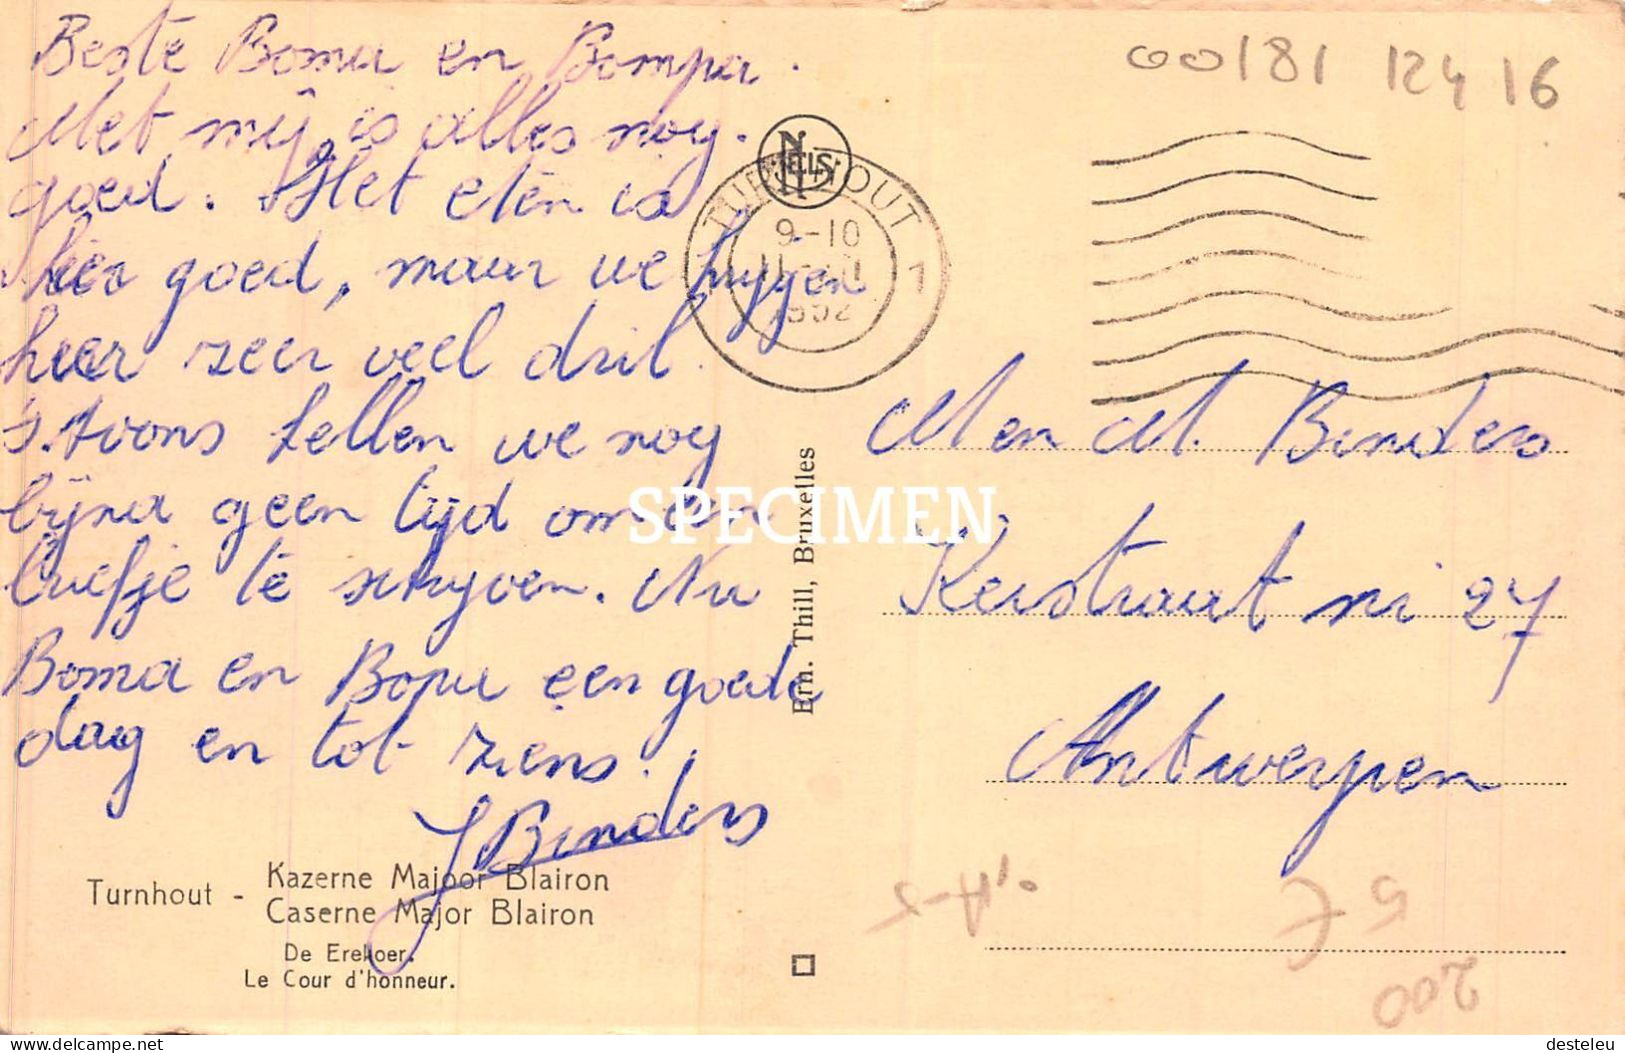 Beste Boma en Bompa.
Met mij is alles nog
goed. Het eten is
hier goed, maar we krijgen
hier zeer veel dril.
s. avons hellen we nog
bijna geen tijd om een
briefje te schrijven. Nu
Boma en Bopa een goede
dag en tot ziens!
J Binders
Turnhout -
Kazerne Majoor Blairon
Caserne Major Blairon
De Erekoer.
Le Cour d'honneur.
NELS
TURNHOUT
9-10
1952
1
Ern. Thill, Bruxelles
SPECIMEN
00181 124 16
M en M. Binders
Kerstraat nr 27
Antwerpen
5 €
200
delcampe.net
desteleu